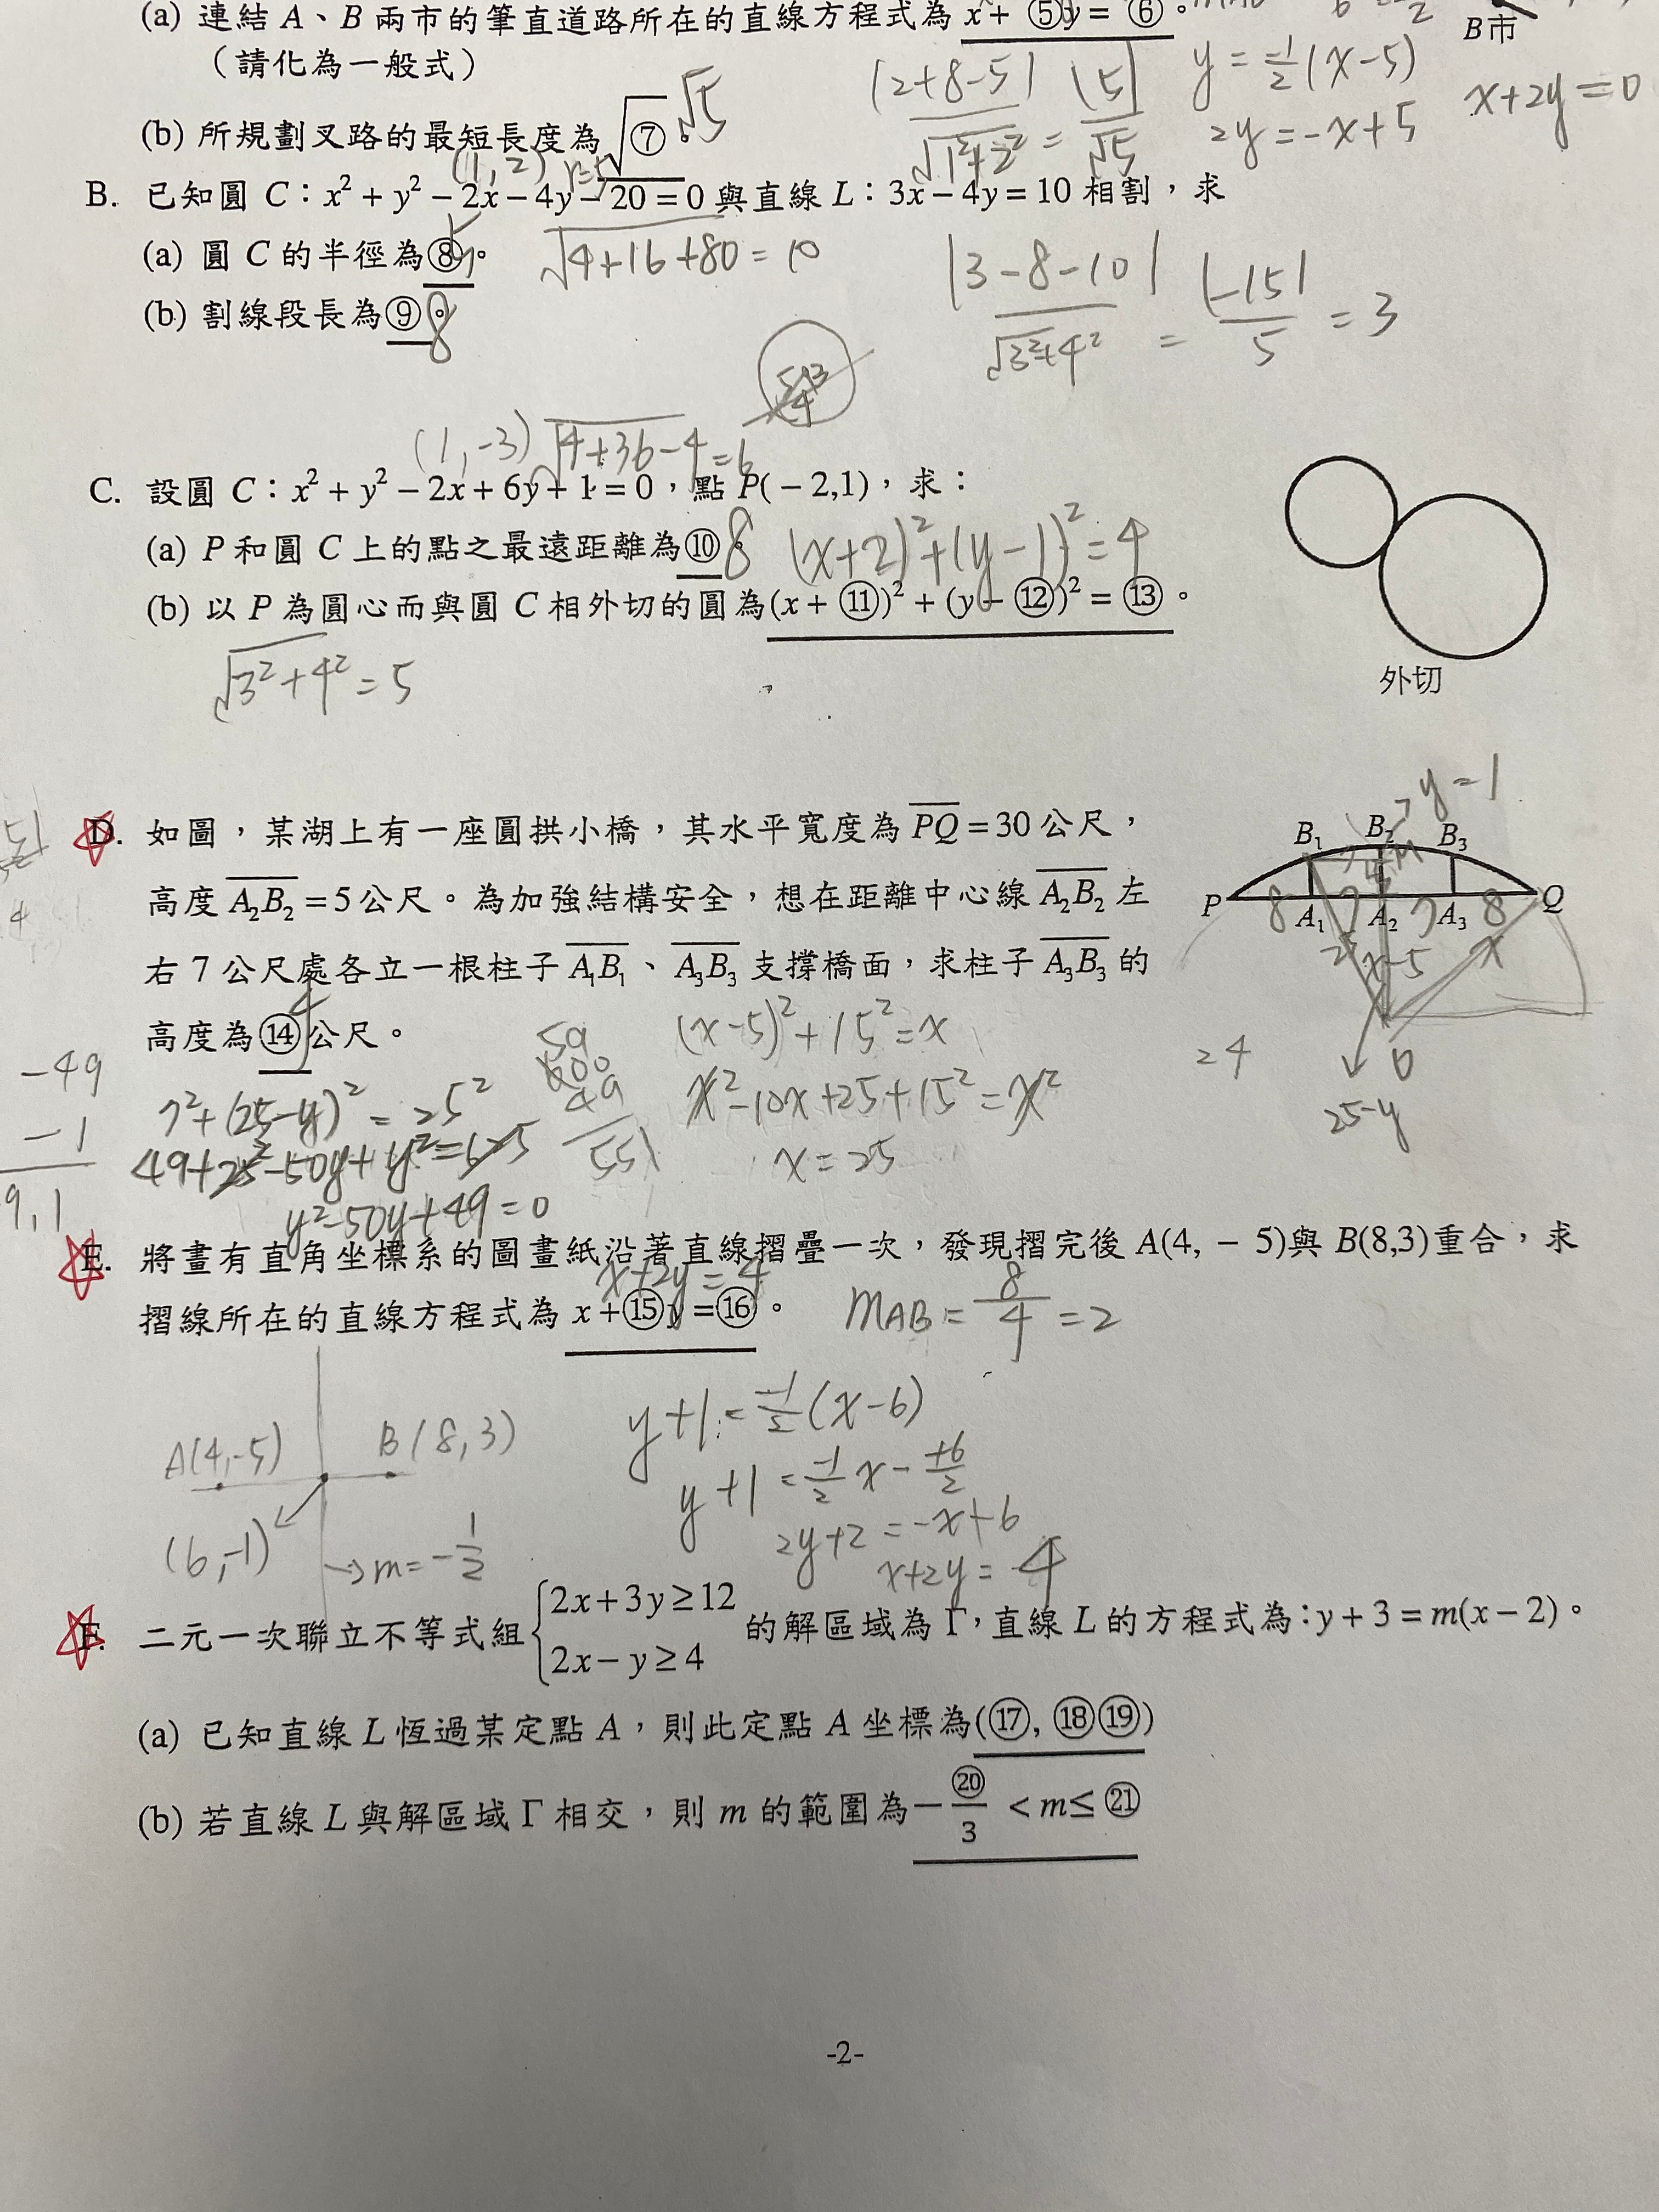 (a) 連結 A、B 兩市的筆直道路所在的直線方程式為 x + ⑤y = ⑥。
B市
（請化為一般式）
y = 1/2 (x-5)
2y = -x+5
x+2y = 0
|2+8-5| / √1²+2² = |5| / √5
(b) 所規劃叉路的最短長度為 √⑦。 √5
(1, 2)
B. 已知圓 C：x² + y² − 2x − 4y − 20 = 0 與直線 L：3x − 4y = 10 相割，求
(a) 圓 C 的半徑為⑧。 5
√4+16+80 = 10
|3-8-10| / √3²+4² = |-15| / 5 = 3
(b) 割線段長為⑨。 8
(1, -3) √4+36-4 = 6
C. 設圓 C：x² + y² − 2x + 6y + 1 = 0，點 P( − 2,1)，求：
(a) P 和圓 C 上的點之最遠距離為⑩。 8
(x+2)²+(y-1)² = 4
(b) 以 P 為圓心而與圓 C 相外切的圓為(x + ⑪)² + (y − ⑫)² = ⑬。
√3²+4² = 5
外切
D. 如圖，某湖上有一座圓拱小橋，其水平寬度為 PQ = 30 公尺，
高度 A₂B₂ = 5 公尺。為加強結構安全，想在距離中心線 A₂B₂ 左
右 7 公尺處各立一根柱子 A₁B₁、A₃B₃ 支撐橋面，求柱子 A₃B₃ 的
高度為⑭公尺。 4
y = 1
B₁ B₂ B₃
P A₁ A₂ A₃ Q
8 7 7 8
25 x-5 x
24
0
25-y
(x-5)²+15² = x
x²-10x+25+15² = x²
x = 25
7²+(25-y)² = 25²
49+25²-50y+y² = 625
y²-50y+49 = 0
600
49
551
-49
-1
9, 1
E. 將畫有直角坐標系的圖畫紙沿著直線摺疊一次，發現摺完後 A(4, − 5)與 B(8,3)重合，求
摺線所在的直線方程式為 x + ⑮y = ⑯。
x+2y = 4
mAB = 8/4 = 2
A(4,-5) B(8,3)
(6,-1) →m = -1/2
y+1 = -1/2 (x-6)
y+1 = -1/2 x - +6/2
2y+2 = -x+6
x+2y = 4
F. 二元一次聯立不等式組 { 2x + 3y ≥ 12
2x − y ≥ 4 的解區域為 Γ，直線 L 的方程式為：y + 3 = m(x − 2)。
(a) 已知直線 L 恆過某定點 A，則此定點 A 坐標為(⑰, ⑱⑲)
(b) 若直線 L 與解區域 Γ 相交，則 m 的範圍為 −⑳/3 < m ≤ ㉑
-2-